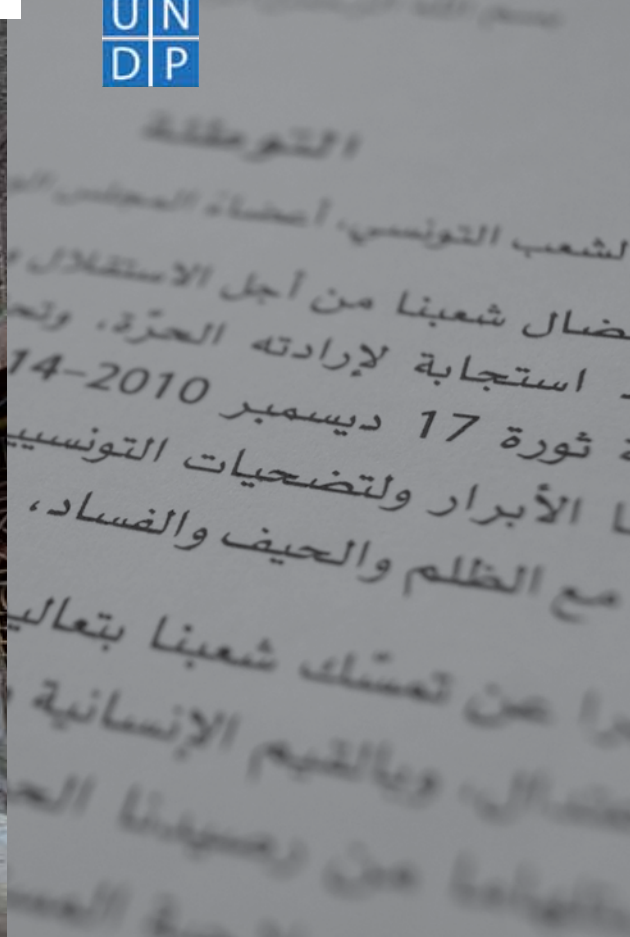 UN
DP
بسم الله
التوطئة
لشعب التونسي، أعضاء المجلس
ضال شعبنا من أجل الاستقلال و
استجابة لإرادته الحرّة، وتح
ة ثورة 17 ديسمبر 2010-14
ا الأبرار ولتضحيات التونسيي
مع الظلم والحيف والفساد،
را عن تمسّك شعبنا بتعالي
تدال، وبالقيم الإنسانية
من رصيدنا الح